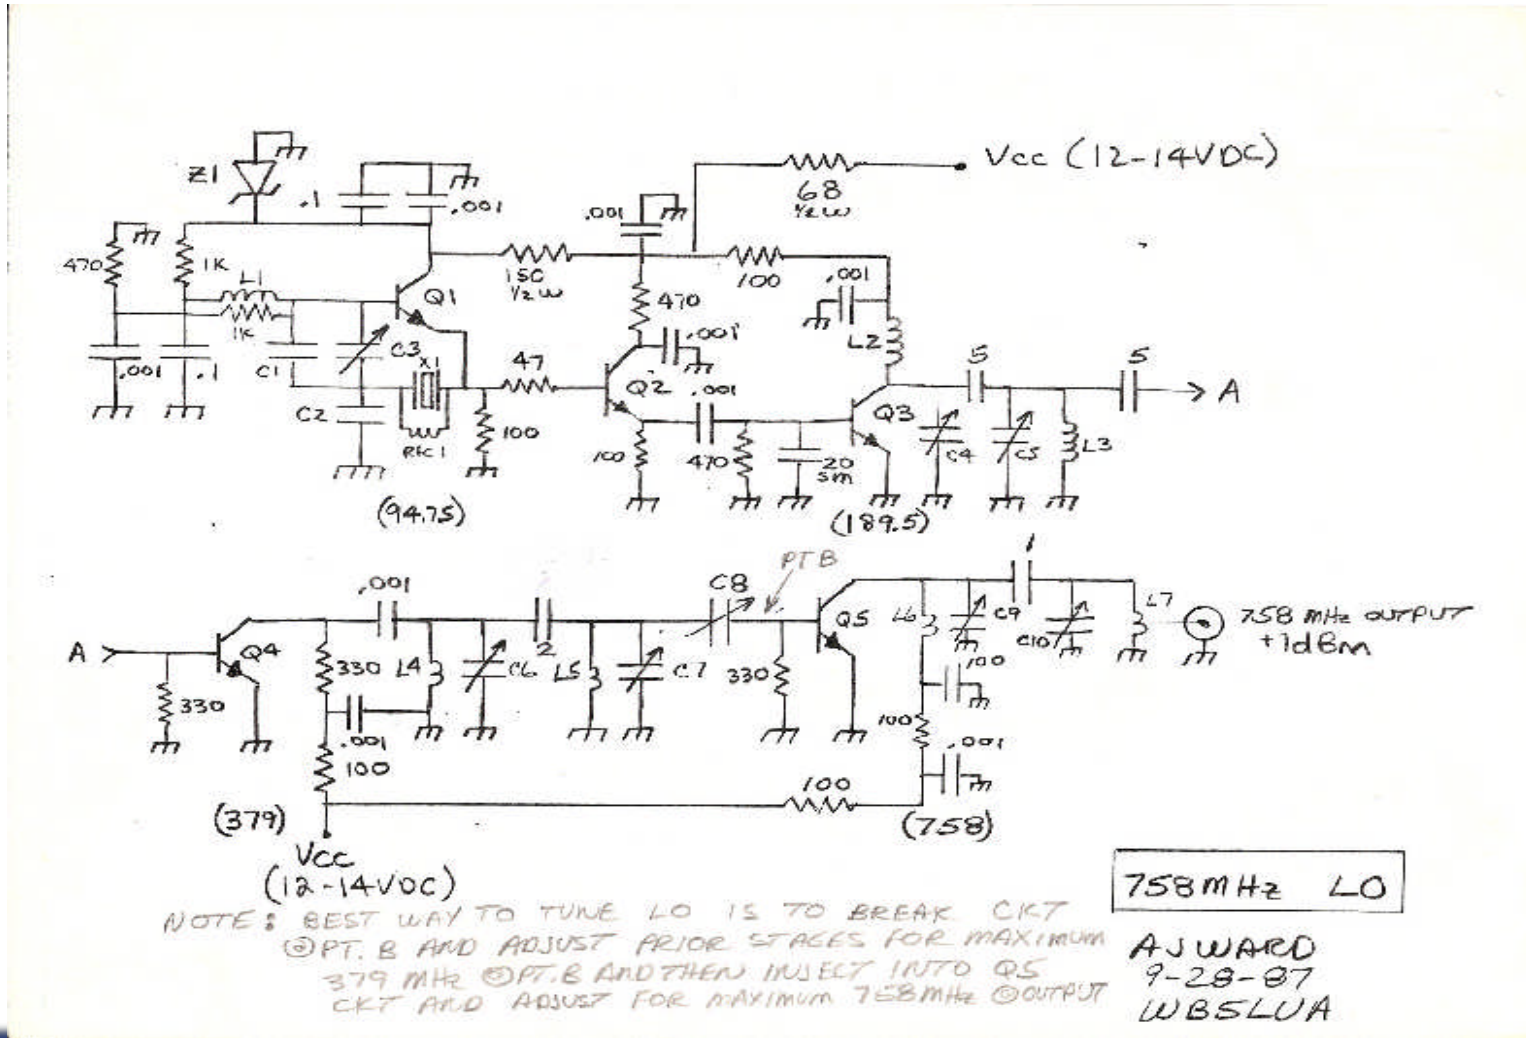 Vcc (12-14VDC)
Z1
.1
.001
.001
68
1/2 W
470
1K
L1
150
1/2 W
100
.001
Q1
470
1K
.001
L2
.001
.1
C1
C3
X1
47
Q2
.001
5
5
A
C2
RFC1
100
100
470
20
SM
Q3
C4
C5
L3
(94.75)
(189.5)
PT B
.001
C8
A
Q4
330
330
L4
C6
2
L5
C7
330
Q5
L6
C9
1
C10
L7
758 MHz OUTPUT
+7dBm
.001
100
100
100
.001
100
(379)
(758)
Vcc
(12-14VDC)
758MHz LO
NOTE: BEST WAY TO TUNE LO IS TO BREAK CKT
@PT. B AND ADJUST PRIOR STAGES FOR MAXIMUM
379 MHz @PT.B AND THEN INJECT INTO Q5
CKT AND ADJUST FOR MAXIMUM 758MHz @OUTPUT
AJWARD
9-28-87
WB5LUA